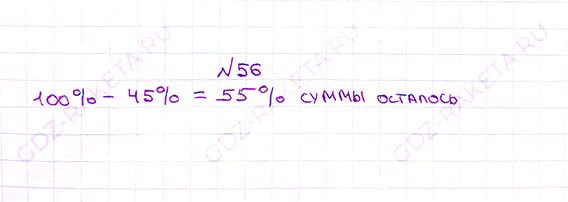 №56
100% - 45% = 55% суммы осталось
GDZ-RAKETA.RU
GDZ-RAKETA.RU
GDZ-RAKETA.RU
GDZ-RAKETA.RU